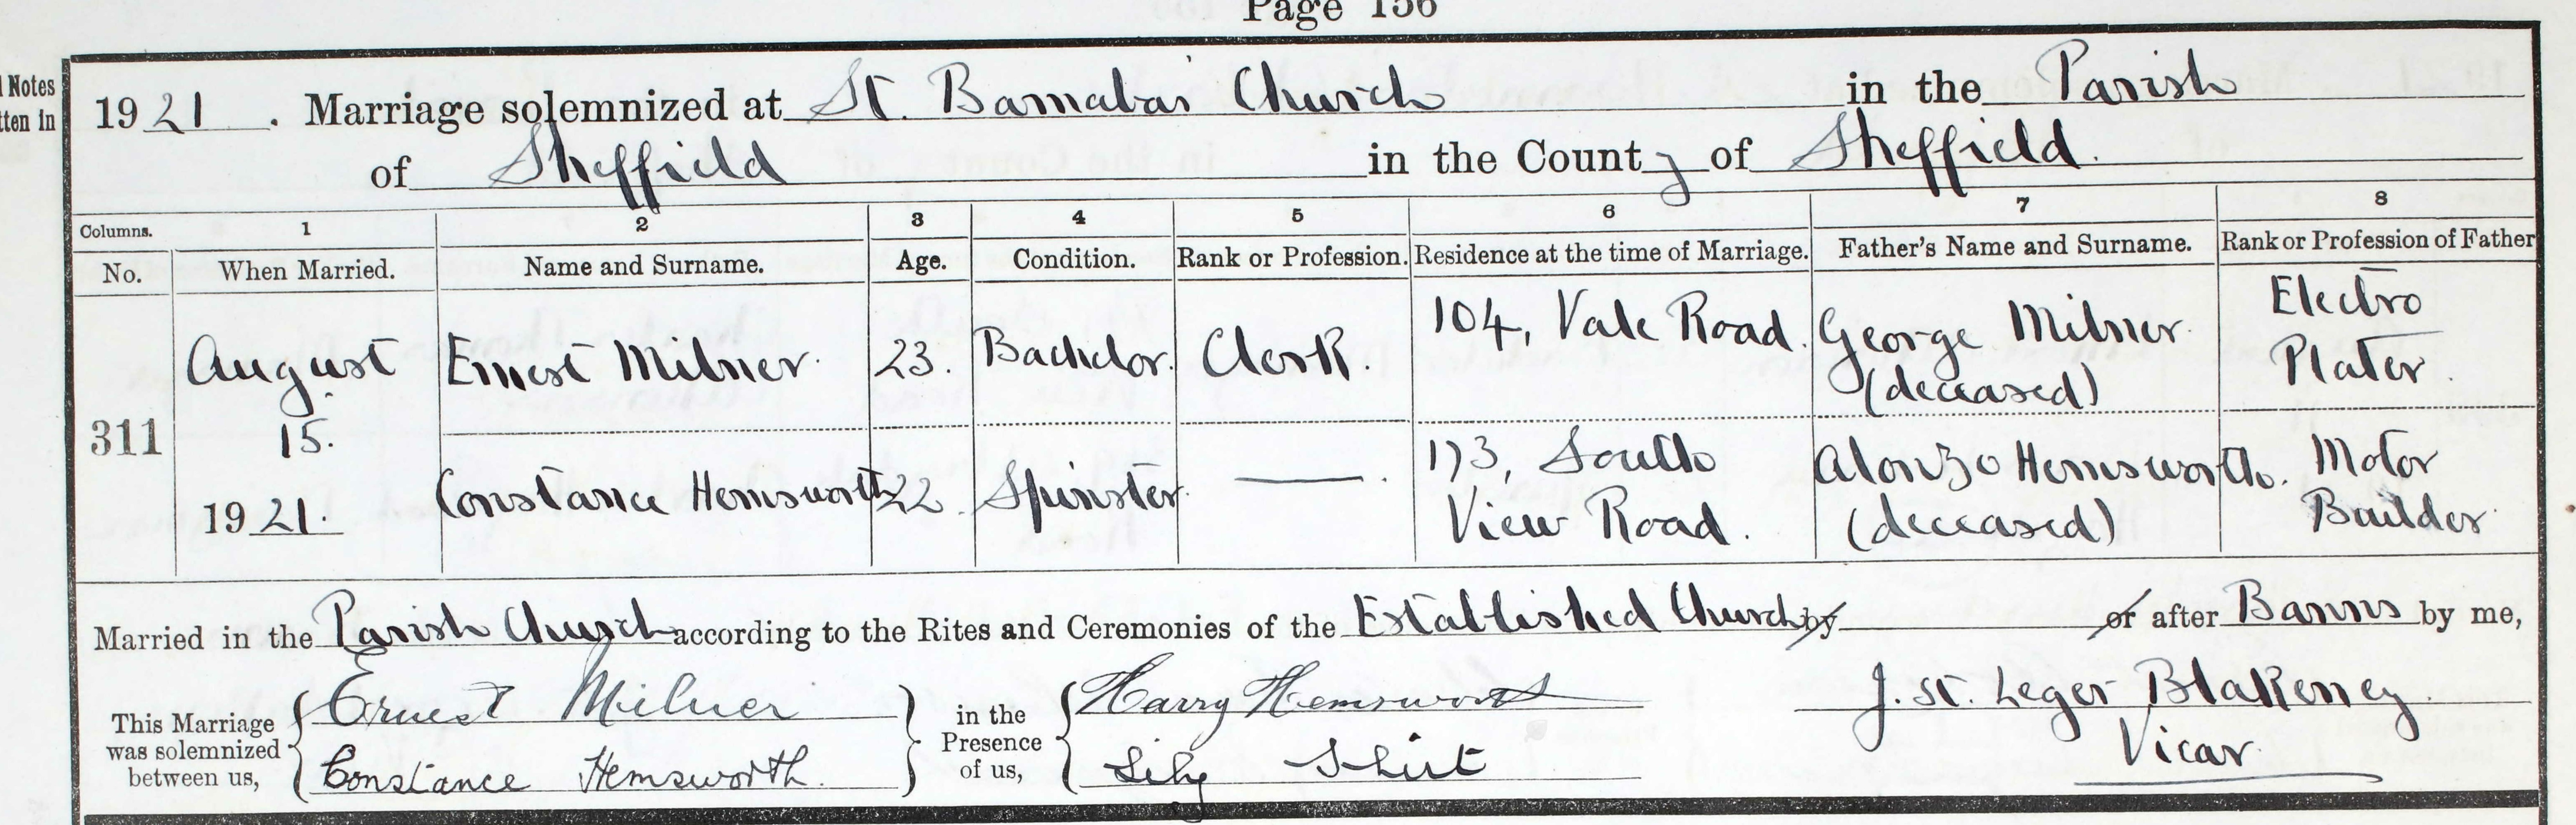 Page 156
l Notes
tten in
1921. Marriage solemnized at St. Barnabas' Church in the Parish
of Sheffield in the County of Sheffield.
Columns. 1 2 3 4 5 6 7 8
No. When Married. Name and Surname. Age. Condition. Rank or Profession. Residence at the time of Marriage. Father's Name and Surname. Rank or Profession of Father
311
August
15.
1921.
Ernest Milner. 23. Bachelor. Clerk. 104, Vale Road. George Milner.
(deceased)
Electro
Plater.
Constance Hemsworth 22. Spinster. — . 173, South
View Road.
Alonzo Hemsworth.
(deceased)
Motor
Builder.
Married in the Parish Church according to the Rites and Ceremonies of the Established Church by or after Banns by me,
This Marriage
was solemnized
between us,
Ernest Milner
Constance Hemsworth.
in the
Presence
of us,
Harry Hemsworth
Lily Shirt
J. St. Leger Blakeney.
Vicar.